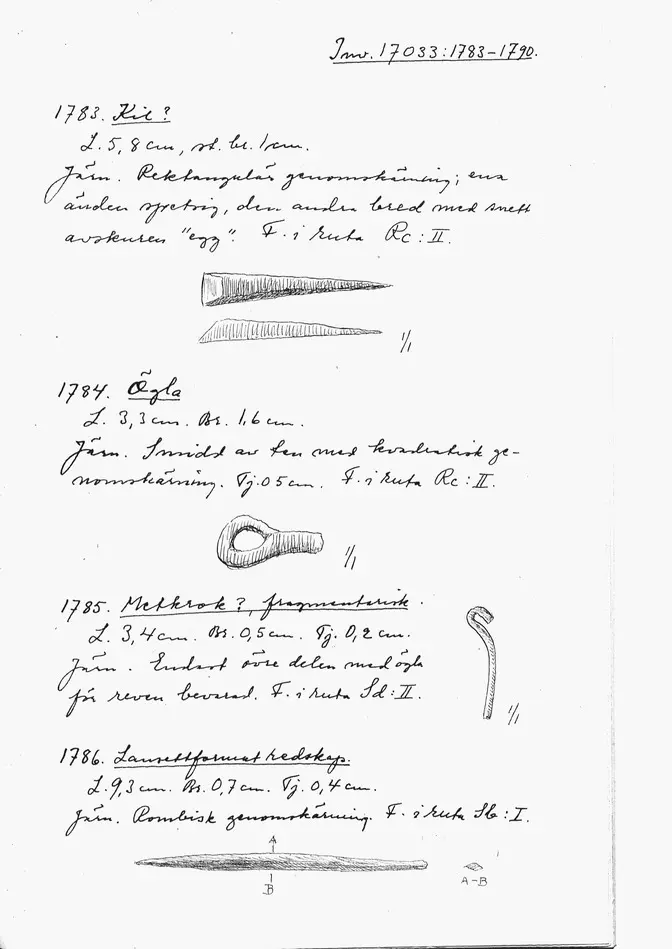 Inv. 17033:1783–1790.
1783. Kil?
L. 5,8 cm, st. br. 1 cm.
Järn. Rektangulär genomskärning; ena
änden spetsig, den andra bred med snett
avskuren "egg". F. i ruta Rc:II.
1/1
1784. Ögla
L. 3,3 cm. Br. 1,6 cm.
Järn. Smidd av ten med kvadratisk ge-
nomskärning. Tj. 0 5 cm. F. i ruta Rc:II.
1/1
1785. Metkrok?, fragmentarisk.
L. 3,4 cm. Br. 0,5 cm. Tj. 0,2 cm.
Järn. Endast övre delen med ögla
för reven bevarad. F. i ruta Sd:II.
1/1
1786. Lansettformat redskap.
L. 9,3 cm. Br. 0,7 cm. Tj. 0,4 cm.
Järn. Rombisk genomskärning. F. i ruta Sb:I.
A
B
A–B